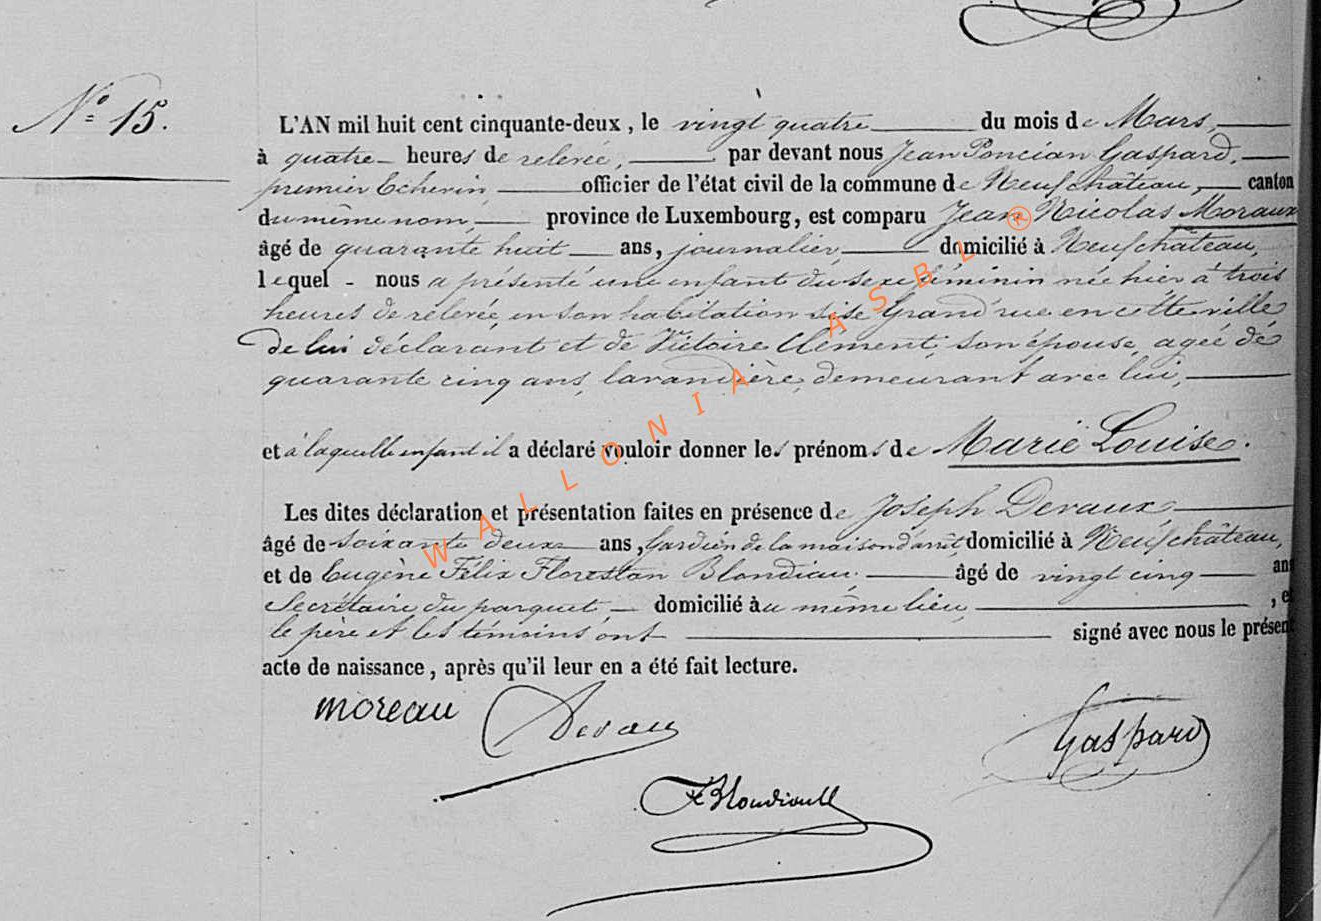 N° 15.
L'AN mil huit cent cinquante-deux, le vingt quatre du mois de Mars,
à quatre heures de relevée, par devant nous Jean Poncian Gaspard,
premier Echevin officier de l'état civil de la commune de Neufchâteau, canton
du même nom, province de Luxembourg, est comparu Jean Nicolas Moraux
âgé de quarante huit ans, journalier domicilié à Neufchâteau,
lequel - nous a présenté une enfant du sexe féminin née hier à trois
heures de relevée, en son habitation sise Grand'rue en cette ville
de lui déclarant et de Victoire Clément, son épouse, agée de
quarante cinq ans, lavandière, demeurant avec lui,
et à laquelle enfant il a déclaré vouloir donner les prénoms de Marie Louise.
Les dites déclaration et présentation faites en présence de Joseph Devaux
âgé de soixante deux ans, Gardien de la maison d'arrêt, domicilié à Neufchâteau,
et de Eugène Félix Florestan Blondiau, âgé de vingt cinq ans
Secrétaire du parquet domicilié au même lieu, , et
le père et les témoins ont signé avec nous le présent
acte de naissance, après qu'il leur en a été fait lecture.
moreau Devau Gaspard
FBlondiau
WALLONIA ASBL ®